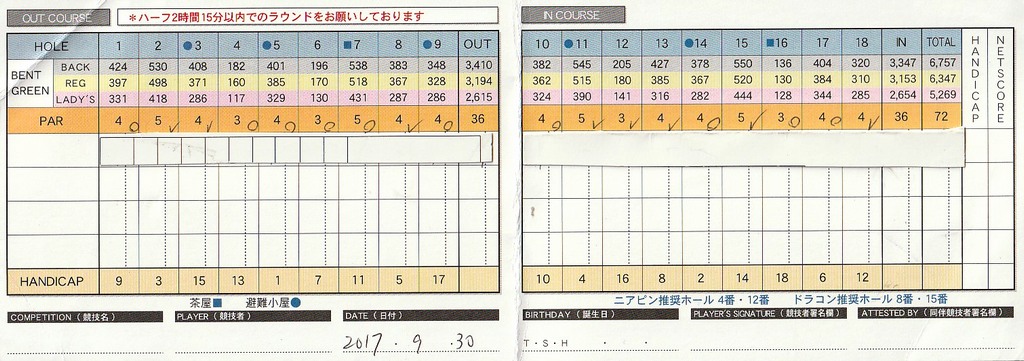 OUT COURSE
＊ハーフ2時間15分以内でのラウンドをお願いしております
HOLE 1 2 ●3 4 ●5 6 ■7 8 ●9 OUT
BENT GREEN
BACK 424 530 408 182 401 196 538 383 348 3,410
REG 397 498 371 160 385 170 518 367 328 3,194
LADY'S 331 418 286 117 329 130 431 287 286 2,615
PAR 4 5 4 3 4 3 5 4 4 36
HANDICAP 9 3 15 13 1 7 11 5 17
茶屋■ 避難小屋●
COMPETITION（競技名） PLAYER（競技者） DATE（日付）
2017 . 9 . 30
IN COURSE
10 ●11 12 13 ●14 15 ■16 17 18 IN TOTAL HANDICAP NETSCORE
382 545 205 427 378 550 136 404 320 3,347 6,757
362 515 180 385 367 520 130 384 310 3,153 6,347
324 390 141 316 282 444 128 344 285 2,654 5,269
4 5 3 4 4 5 3 4 4 36 72
10 4 16 8 2 14 18 6 12
ニアピン推奨ホール 4番・12番 ドラコン推奨ホール 8番・15番
BIRTHDAY（誕生日） PLAYER'S SIGNATURE（競技者署名欄） ATTESTED BY（同伴競技者署名欄）
T・S・H ・ ・